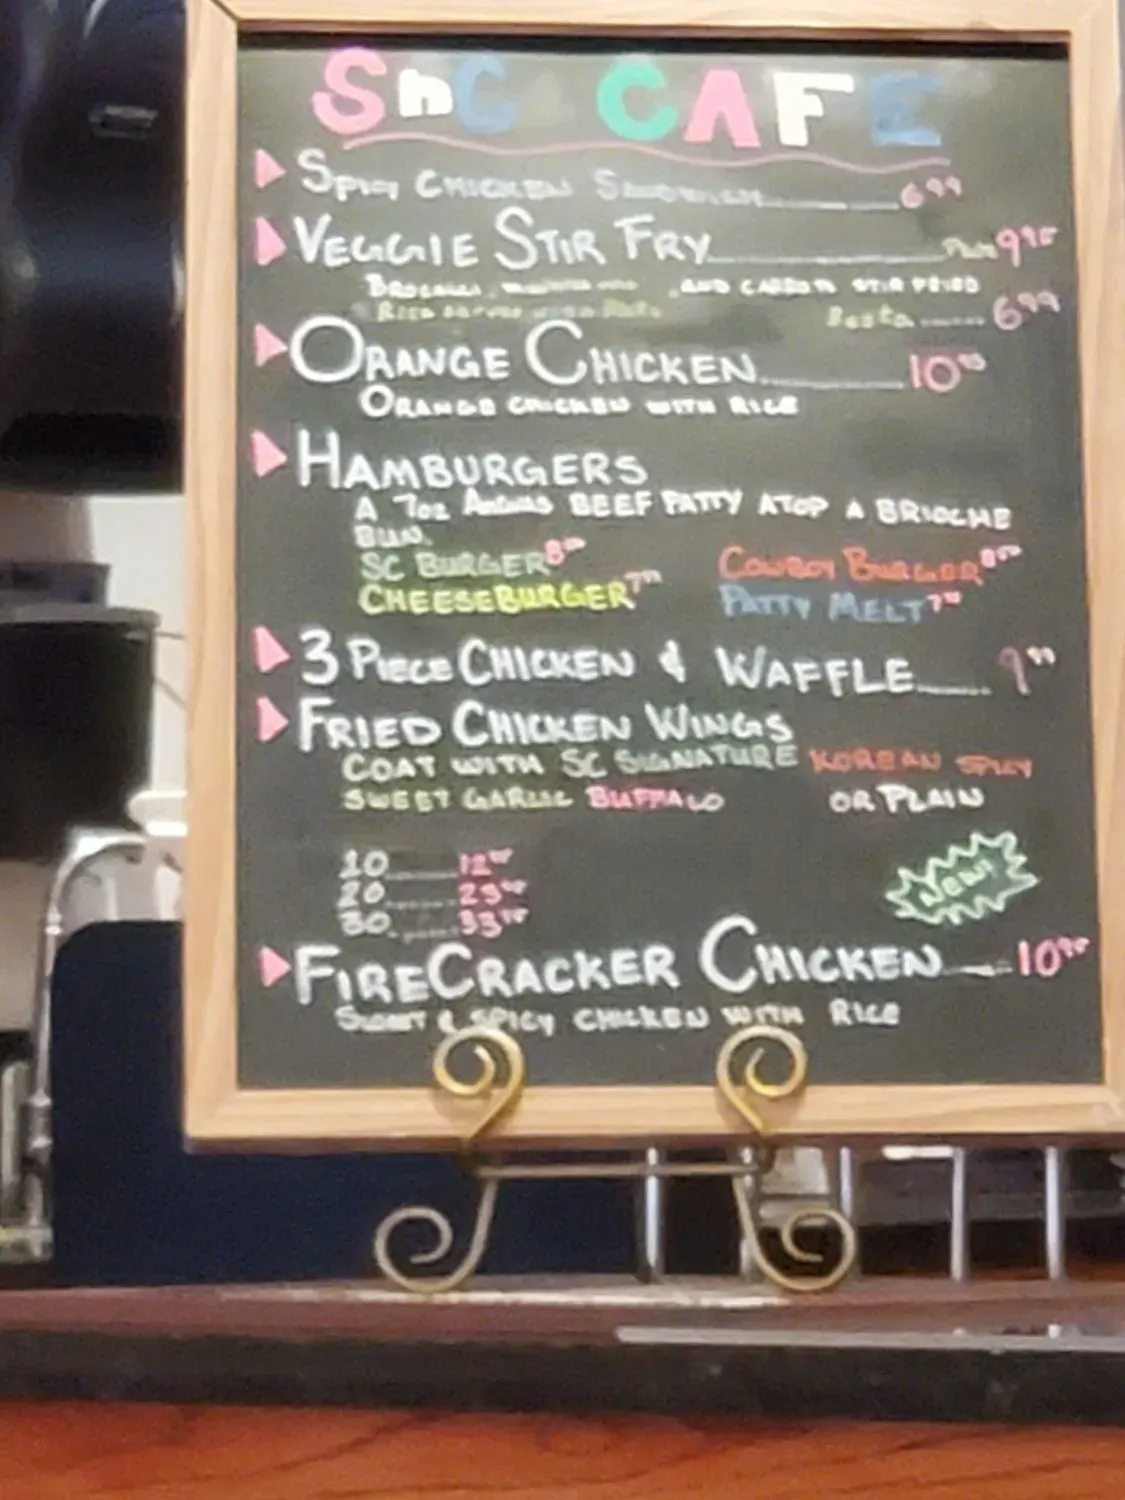 SnC CAFE
SPICY CHICKEN SANDWICH 6.99
VEGGIE STIR FRY 9.95
BROCCOLI, AND CARROTS STIR FRIED
RICE 6.99
ORANGE CHICKEN 10
ORANGE CHICKEN WITH RICE
HAMBURGERS
A 7oz ANGUS BEEF PATTY ATOP A BRIOCHE
BUN.
SC BURGER 8 COWBOY BURGER 8
CHEESEBURGER 7 PATTY MELT 7
3 PIECE CHICKEN & WAFFLE 9.99
FRIED CHICKEN WINGS
COAT WITH SC SIGNATURE KOREAN SPICY
SWEET GARLIC BUFFALO OR PLAIN
10 12
20 23
30 33
NEW!
FIRECRACKER CHICKEN 10.95
SWEET & SPICY CHICKEN WITH RICE